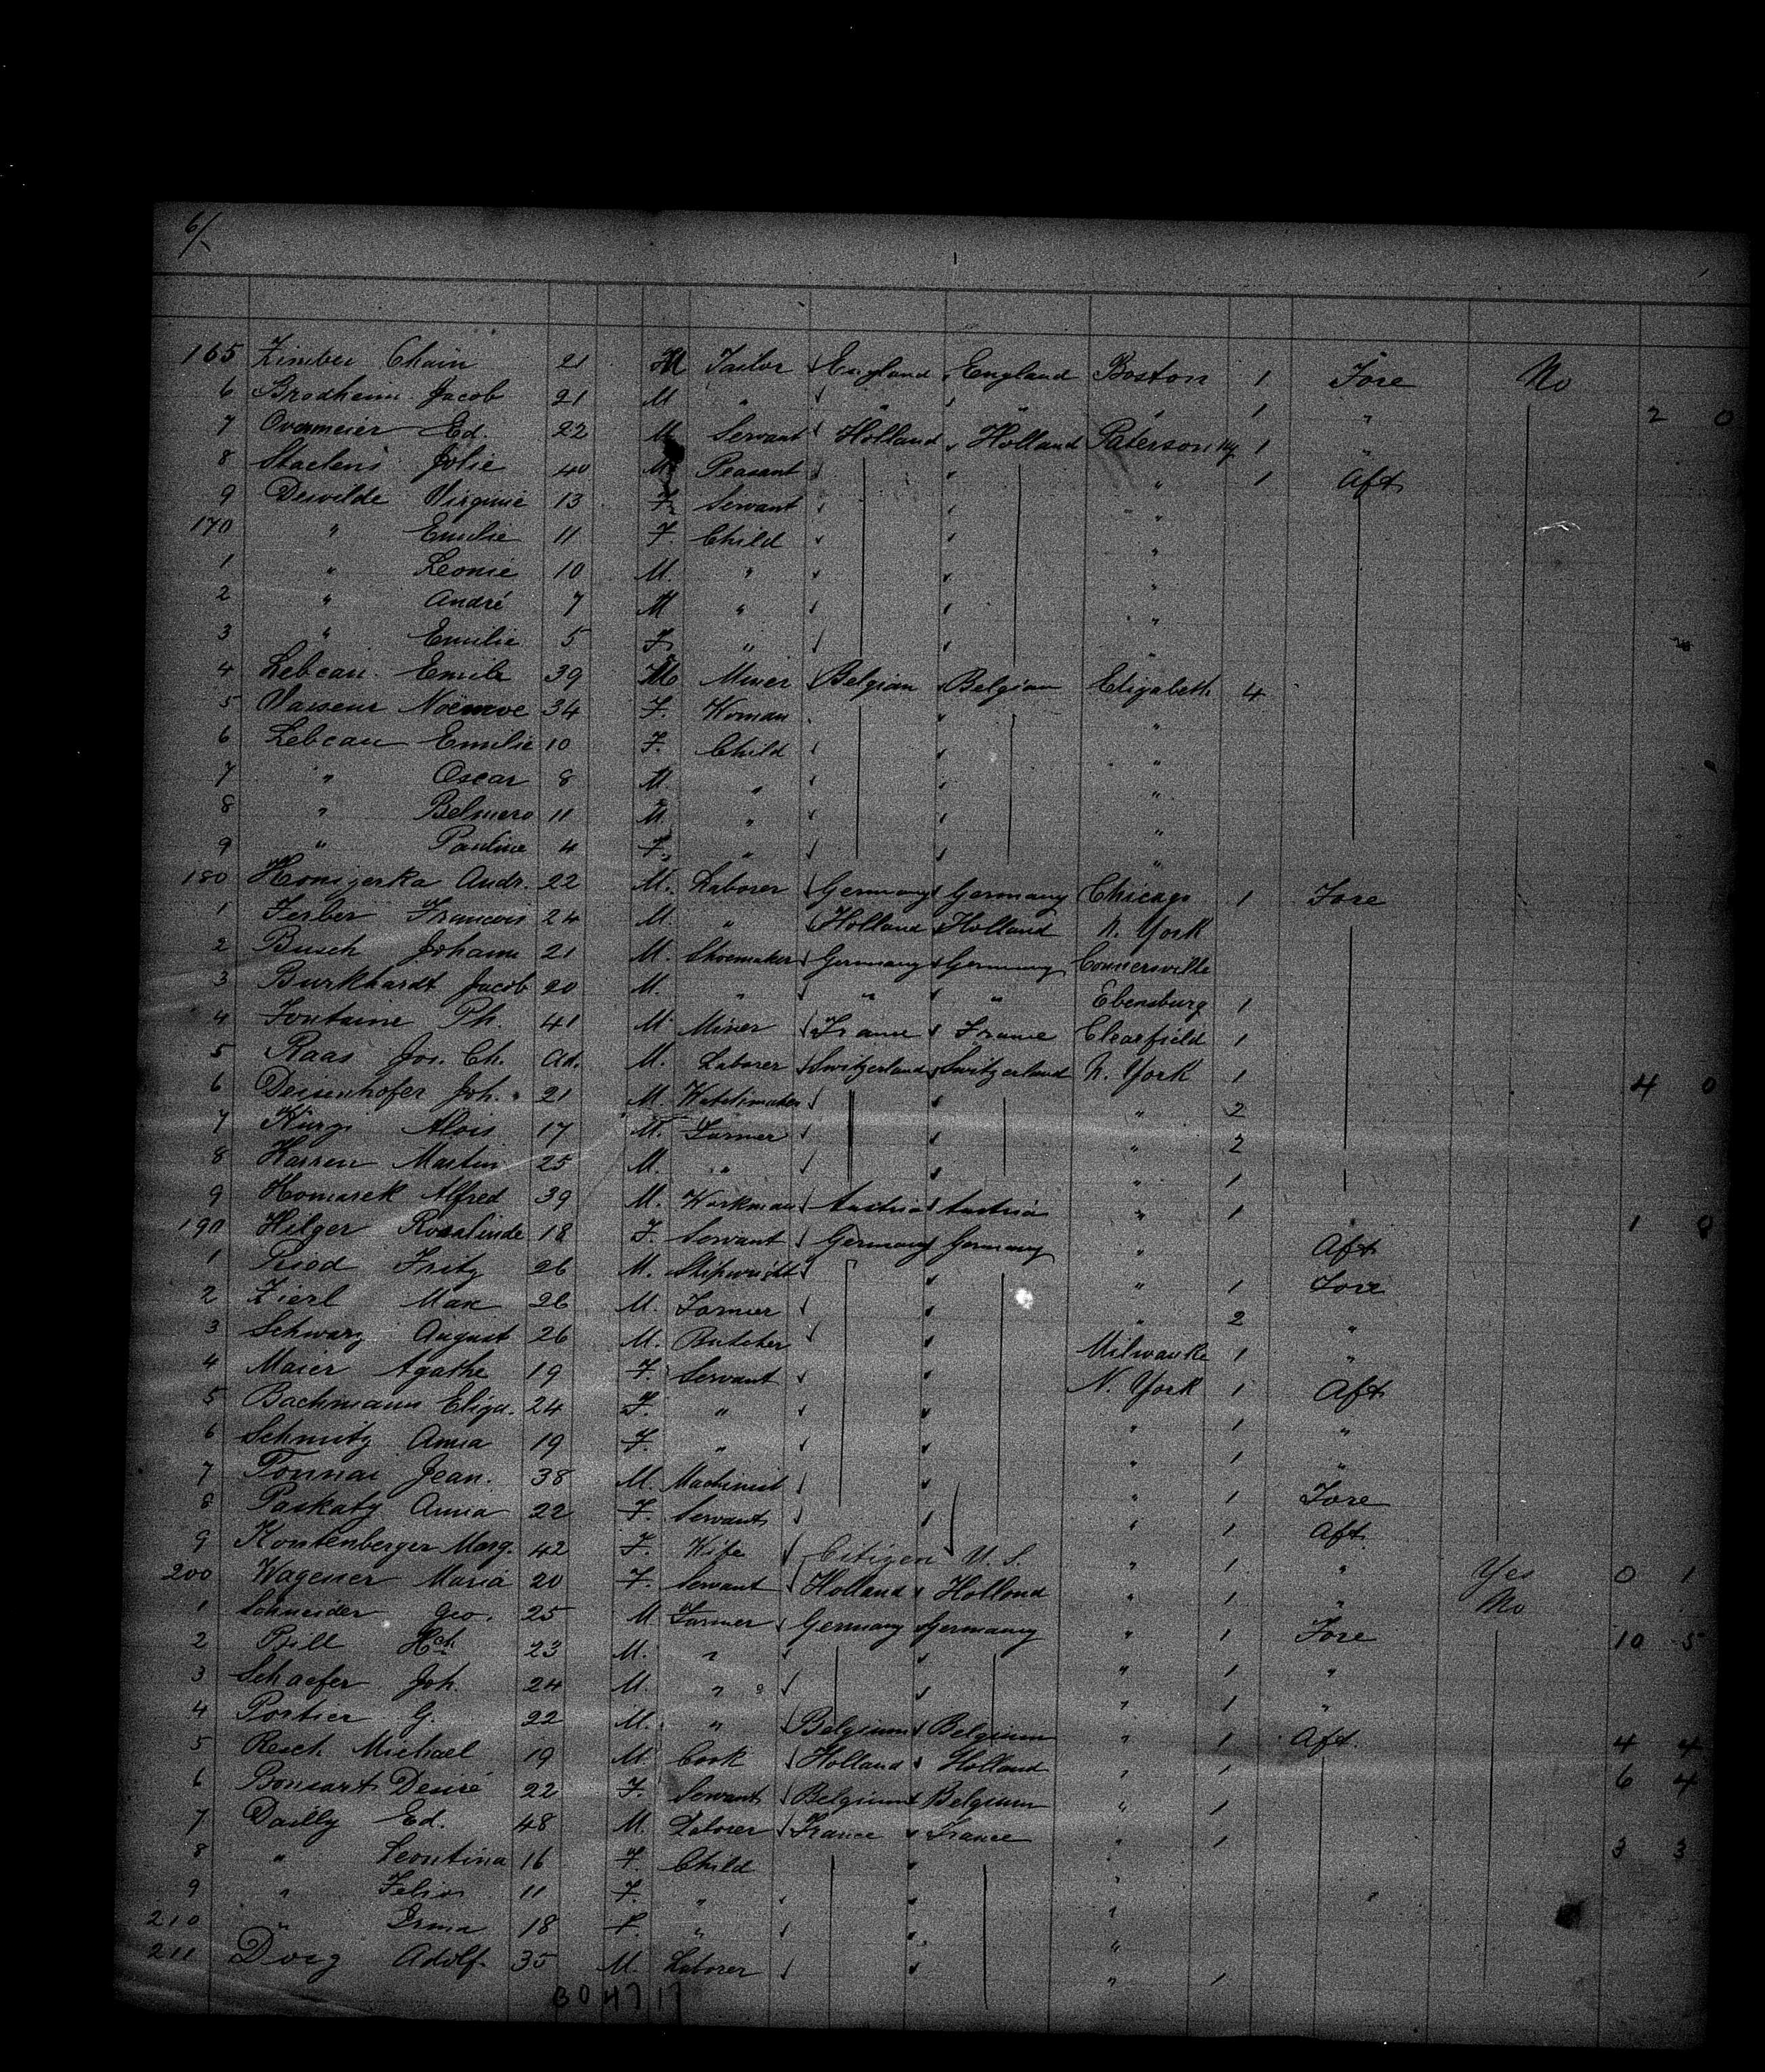 6/
165 Zimber Chain 21 M Tailor England England Boston 1 Fore No
6 Brodheim Jacob 21 M " " " " 1 " 2 0
7 Overmeier Ed. 22 M Servant Holland Holland Paterson NJ 1 "
8 Staelens Jolie 40 M Peasant " 1 Aft
9 Dewilde Virginie 13 F. Servant "
170 " Emelie 11 F. Child "
1 " Leonie 10 M. " "
2 " André 7 M " "
3 " Emilie 5 F. " "
4 Lebeau Emile 39 M Miner Belgian Belgian Elizabeth 4
5 Vasseur 34 F. Woman "
6 Lebeau Emilie 10 F. Child "
7 " Oscar 8 M. " "
8 " 11 M. " "
9 " Pauline 4 F. " "
180 Honigerka Andr. 22 M. Laborer Germany Germany Chicago 1 Fore
1 Ferber Francois 24 M. " Holland Holland N. York
2 Busch Johann 21 M. Shoemaker Germany Germany Connersville
3 Burkhardt Jacob 20 M. " " " Ebensburg 1
4 Fontaine Ph. 41 M. Miner France France Clearfield 1
5 Raas Jos. Ch. ad. M. Laborer Switzerland Switzerland N. York 1 4 0
6 Deisenhofer Joh. 21 M. Watchmaker " 2
7 Kurz Alois 17 M. Farmer " 2
8 Karren Martin 25 M. " " 1
9 Homarek Alfred 39 M. Workman Austria Austria " 1 1 0
190 Hilger Roselinde 18 F. Servant Germany Germany " Aft
1 Ried Fritz 26 M. Shipwright " 1 Fore
2 Zierl Max 26 M. Farmer " 2 "
3 Schwarz August 26 M. Butcher Milwauke 1 "
4 Maier Agathe 19 F. Servant N. York 1 Aft
5 Bachmann Eliza. 24 F. " " 1 "
6 Schmitz Anna 19 F. " " 1 "
7 Jean. 38 M. Machinist " 1 Fore
8 Paskaty Anna 22 F. Servant " 1 Aft
9 Kontenberger Marg. 42 F. Wife Citizen U. S. " 1 " Yes 0 1
200 Wagener Maria 20 F. Servant Holland Holland " 1 " No
1 Schneider Geo. 25 M Farmer Germany Germany " 1 Fore 10 5
2 Bill Hch 23 M. " " 1 "
3 Schaefer Joh. 24 M. " " 1 "
4 Portier G. 22 M. " Belgium Belgium " 1 Aft. 4 4
5 Resch Michael 19 M. Cook Holland Holland " 1 6 4
6 Bonsart Desiré 22 F. Servant Belgium Belgium " 1
7 Dailly Ed. 48 M. Laborer France France " 1 3 3
8 " Leontina 16 F. Child "
9 " 11 F. " "
210 " Irma 18 F. " "
211 Doig Adolf. 35 M. Laborer " 1